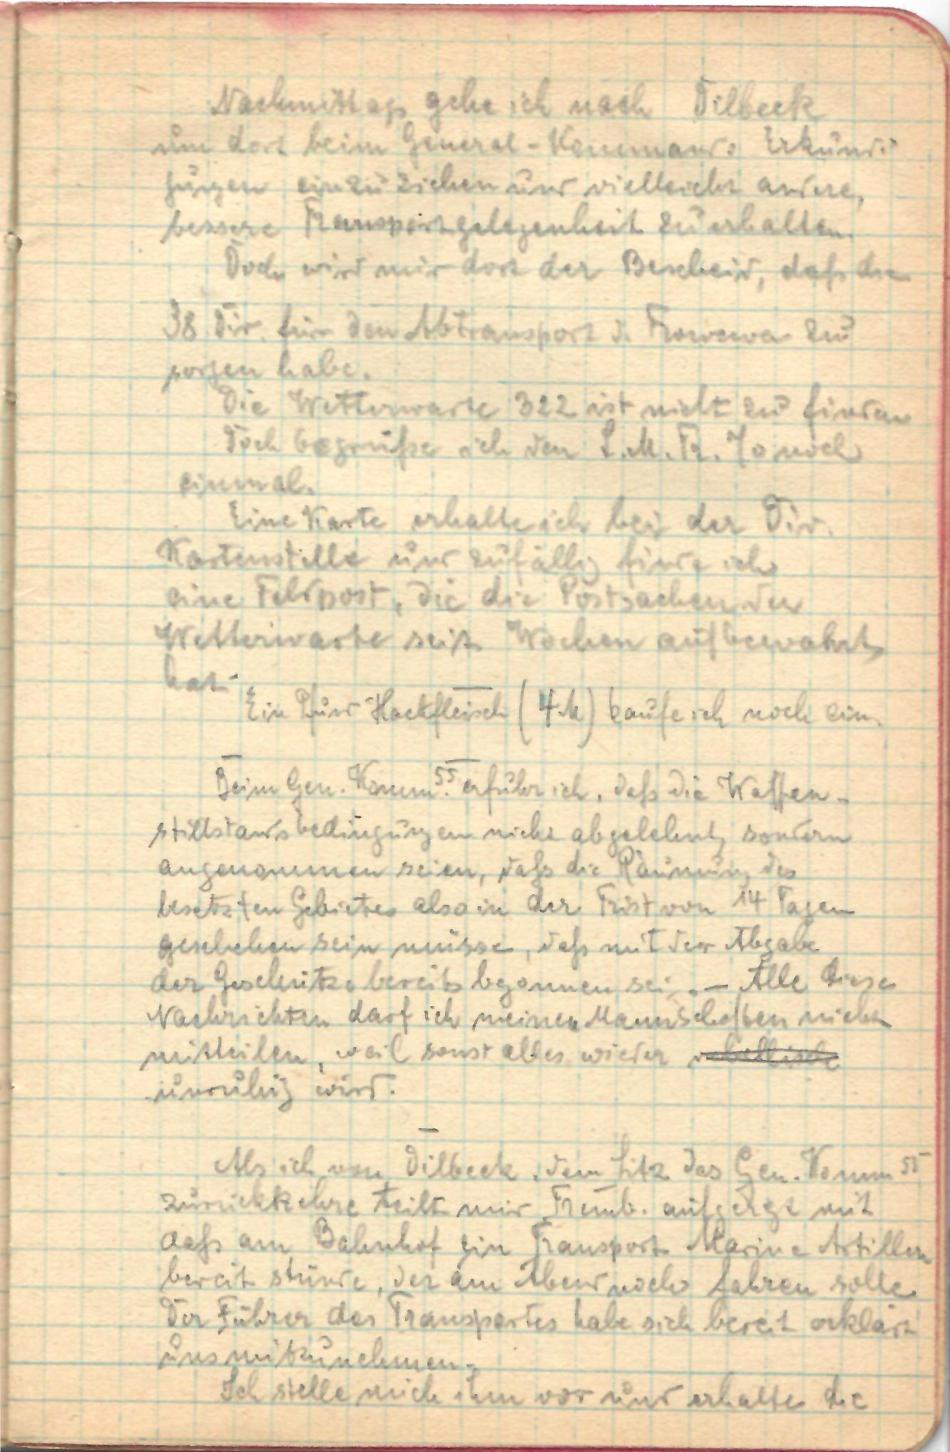 Nachmittags gehe ich nach Dilbeck
um dort beim General-Kommando Erkundi-
gungen einzuziehen und vielleicht andere,
bessere Transportgelegenheit zu erhalten.
Doch wird mir dort der Bescheid, daß die
38 Div. für den Abtransport d. zu
sorgen habe.
Die Wetterwarte 322 ist nicht zu finden
Doch begrüße ich den noch
einmal.
Eine Karte erhalte ich bei der Div.
Kartenstelle und zufällig finde ich
eine Feldpost, die die Postsachen der
Wetterwarte seit Wochen aufbewahrt
hat.
Ein Pfund Hackfleisch (4 M) kaufe ich noch ein.
Beim Gen. Komm. 55 erfuhr ich, daß die Waffen-
stillstandsbedingungen nicht abgelehnt, sondern
angenommen seien, daß die Räumung des
besetzten Gebietes also in der Frist von 14 Tagen
geschehen sein müsse, daß mit der Abgabe
der Geschütze bereits begonnen sei. – Alle diese
Nachrichten darf ich meinen Mannschaften nicht
mitteilen, weil sonst alles wieder
unruhig wird.
Als ich von Dilbeck, dem Sitz des Gen. Komm 55
zurückkehre teilt mir aufgeregt mit
daß am Bahnhof ein Transport Marine Artillerie
bereit stünde, der am Abend noch fahren solle.
Der Führer des Transportes habe sich bereit erklärt
uns mitzunehmen.
Ich stelle mich ihm vor und erhalte die